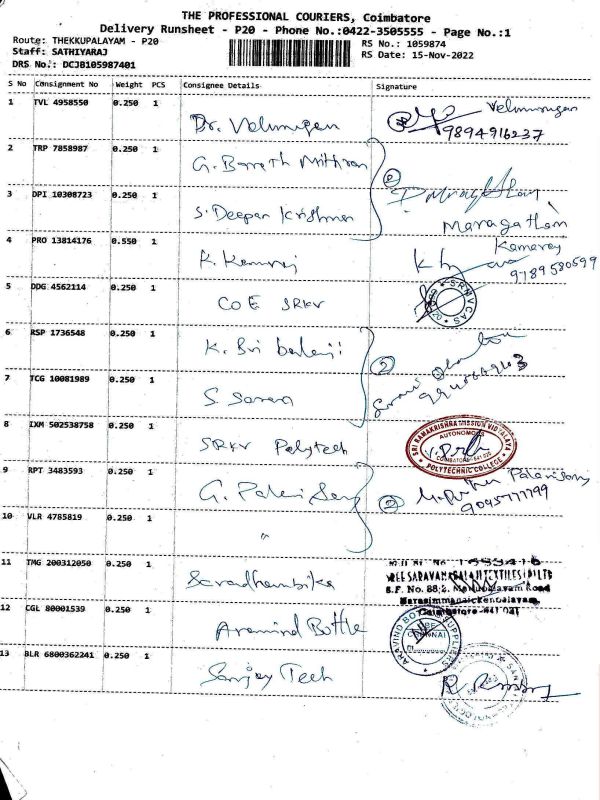 THE PROFESSIONAL COURIERS, Coimbatore
Delivery Runsheet - P20 - Phone No.:0422-3505555 - Page No.:1
Route: THEKKUPALAYAM - P20
RS No.: 1059874
Staff: SATHIYARAJ
RS Date: 15-Nov-2022
DRS No.: DCJB105987401
S No Consignment No Weight PCS Consignee Details Signature
1 TVL 4958550 0.250 1 Dr. Velmurugan Velmurugan
9894916237
2 TRP 7858987 0.250 1 G. Barath Mithran
3 DPI 10308723 0.250 1 S. Deepan Krishnan 2
Maragatham
4 PRO 13814176 0.550 1 K. Kamraj Kamaraj
9789580599
5 DDG 4562114 0.250 1 COE SRKV SRMVCAS
6 RSP 1736548 0.250 1 K. Sri balaji 2
7 TCG 10081989 0.250 1 S. Saran
8 IXM 502538758 0.250 1 SRKV Polytech SRI RAMAKRISHNA MISSION VIDYALAYA
AUTONOMOUS
COIMBATORE-641 020
POLYTECHNIC COLLEGE
9 RPT 3483593 0.250 1 G. Palani Samy 2 Palanisamy
9095777799
10 VLR 4785819 0.250 1 "
11 TMG 200312050 0.250 1 Saradhambika
SREE SARAVANABALAJI TEXTILES (P) LTD
S.F. No. 88/2, Road
Narasimmanaickenpalayam,
Coimbatore-641 031
12 CGL 80001539 0.250 1 Aravind Bottle ARAVIND BOTTLE SUPPLIERS
13 BLR 6800362241 0.250 1 Sanjay Tech